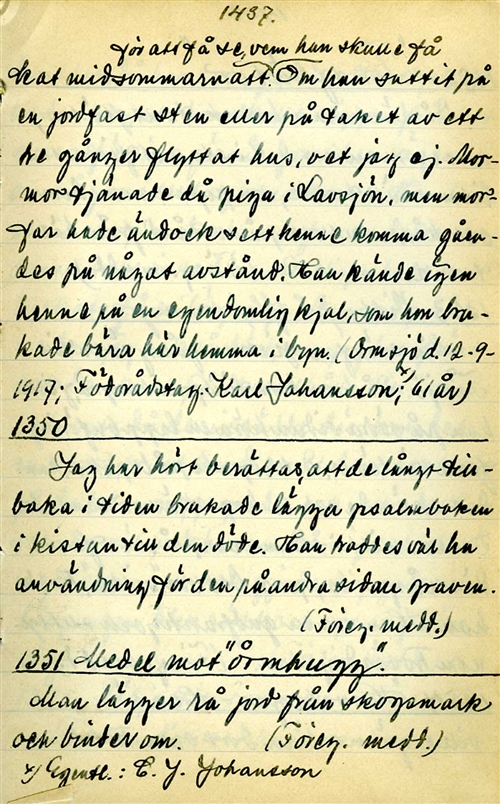 1437.
för att få se, vem han skulle få
kat midsommarnatt. Om han suttit på
en jordfast sten eller på taket av ett
tre gånger flyttat hus, vet jag ej. Mor-
mor tjänade då piga i Lavsjön, men mor-
far hade ändock sett henne komma gåen-
des på något avstånd. Han kände igen
henne på en egendomlig kjol, som hon bru-
kade bära här hemma i byn. (Ormsjö d. 12-9-
1917; Födorådstag. Karl Johansson,x) 61 år)
1350
Jag har hört berättas, att de långt till-
baka i tiden brukade lägga psalmboken
i kistan till den döde. Han troddes väl ha
användning för den på andra sidan graven.
(Föreg. medd.)
1351 Medel mot "ormhugg".
Man lägger rå jord från skogsmark
och binder om. (Föreg. medd.)
x) Egentl.: E. J. Johansson